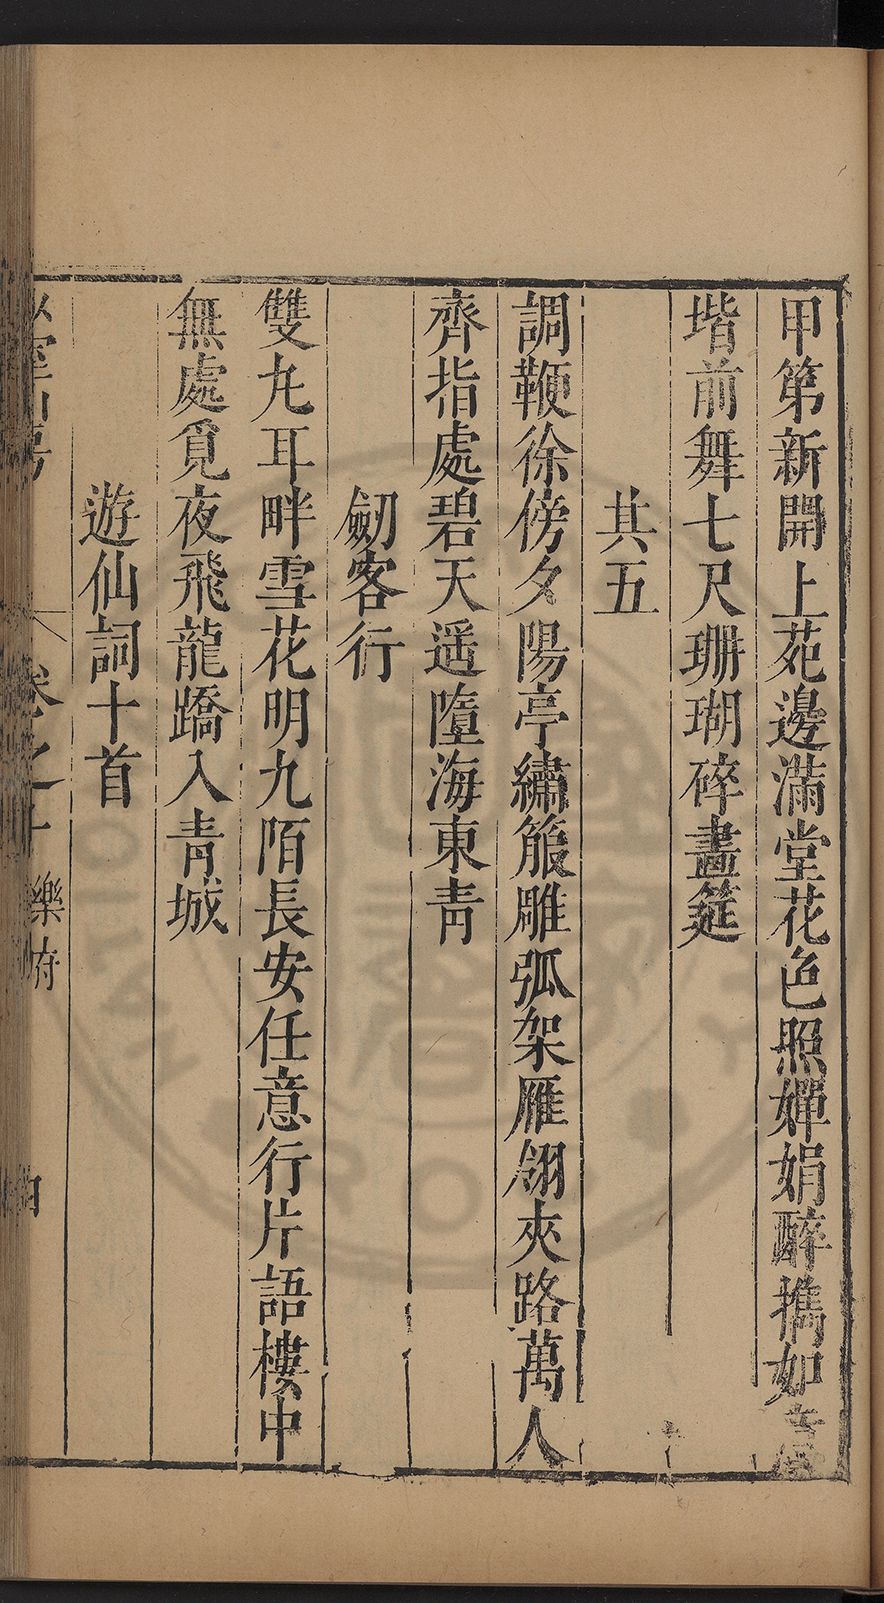 甲第新開上苑邊滿堂花色照嬋娟醉擕如意
堦前舞七尺珊瑚碎畫筵
其五
調鞭徐傍夕陽亭繡箙雕弧架雁翎夾路萬人
齊指處碧天遥墮海東青
劒客行
雙丸耳畔雪花明九陌長安任意行片語樓中
無處覓夜飛龍蹻入青城
遊仙詞十首
卷之十 樂府